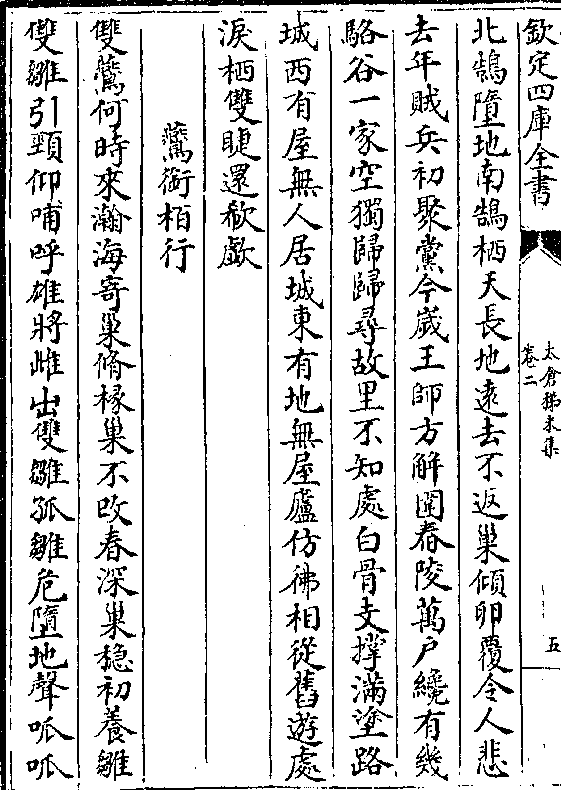 欽定四庫全書
太倉稊米集
卷二
五
北鵲墮地南鵲栖天長地遠去不返巢傾卵覆令人悲
去年賊兵初聚黨今歲王師方解圍春陵萬户纔有幾
駱谷一家空獨歸歸尋故里不知處白骨支撑滿塗路
城西有屋無人居城東有地無屋廬仿彿相從舊遊處
淚栖雙睫還欷歔
鷰銜栢行
雙鷰何時來瀚海寄巢脩椽巢不改春深巢稳初養雛
雙雛引頸仰哺呼雄將雌出雙雛孤雛危墮地聲呱呱